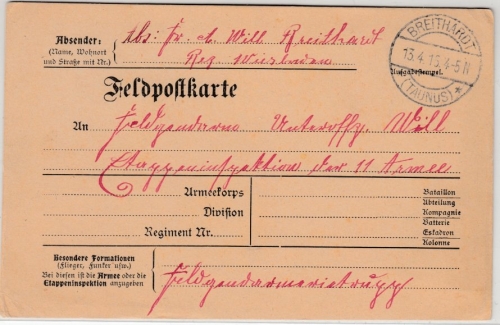 Absender:
(Name, Wohnort
und Straße mit Nr.)
Abs: Fr. A. Will Breithardt
Reg. Wiesbaden
BREITHARDT
13.4.15. 4-5 N
(TAUNUS)
Aufgabestempel.
Feldpostkarte
An
Feldgendarm Unteroffz. Will
Etappeninspektion der 11 Armee
Armeekorps
Division
Regiment Nr.
Bataillon
Abteilung
Kompagnie
Batterie
Eskadron
Kolonne
Besondere Formationen
(Flieger, Funker usw.)
Bei diesen ist die Armee oder die
Etappeninspektion anzugeben
Feldgendarmerietrupp